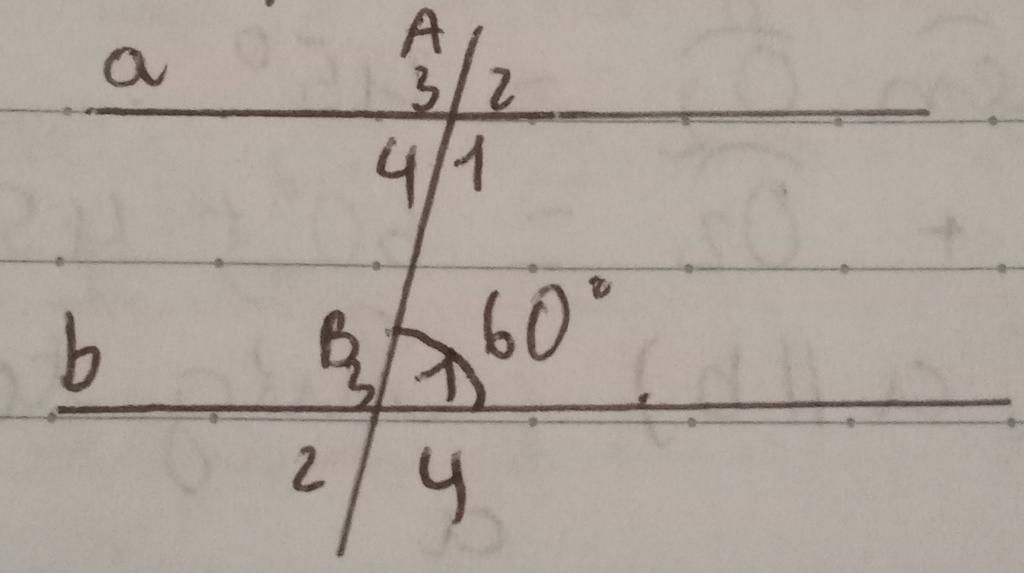 A
a 3 2
4 1
B 60°
b 3 1
2 4